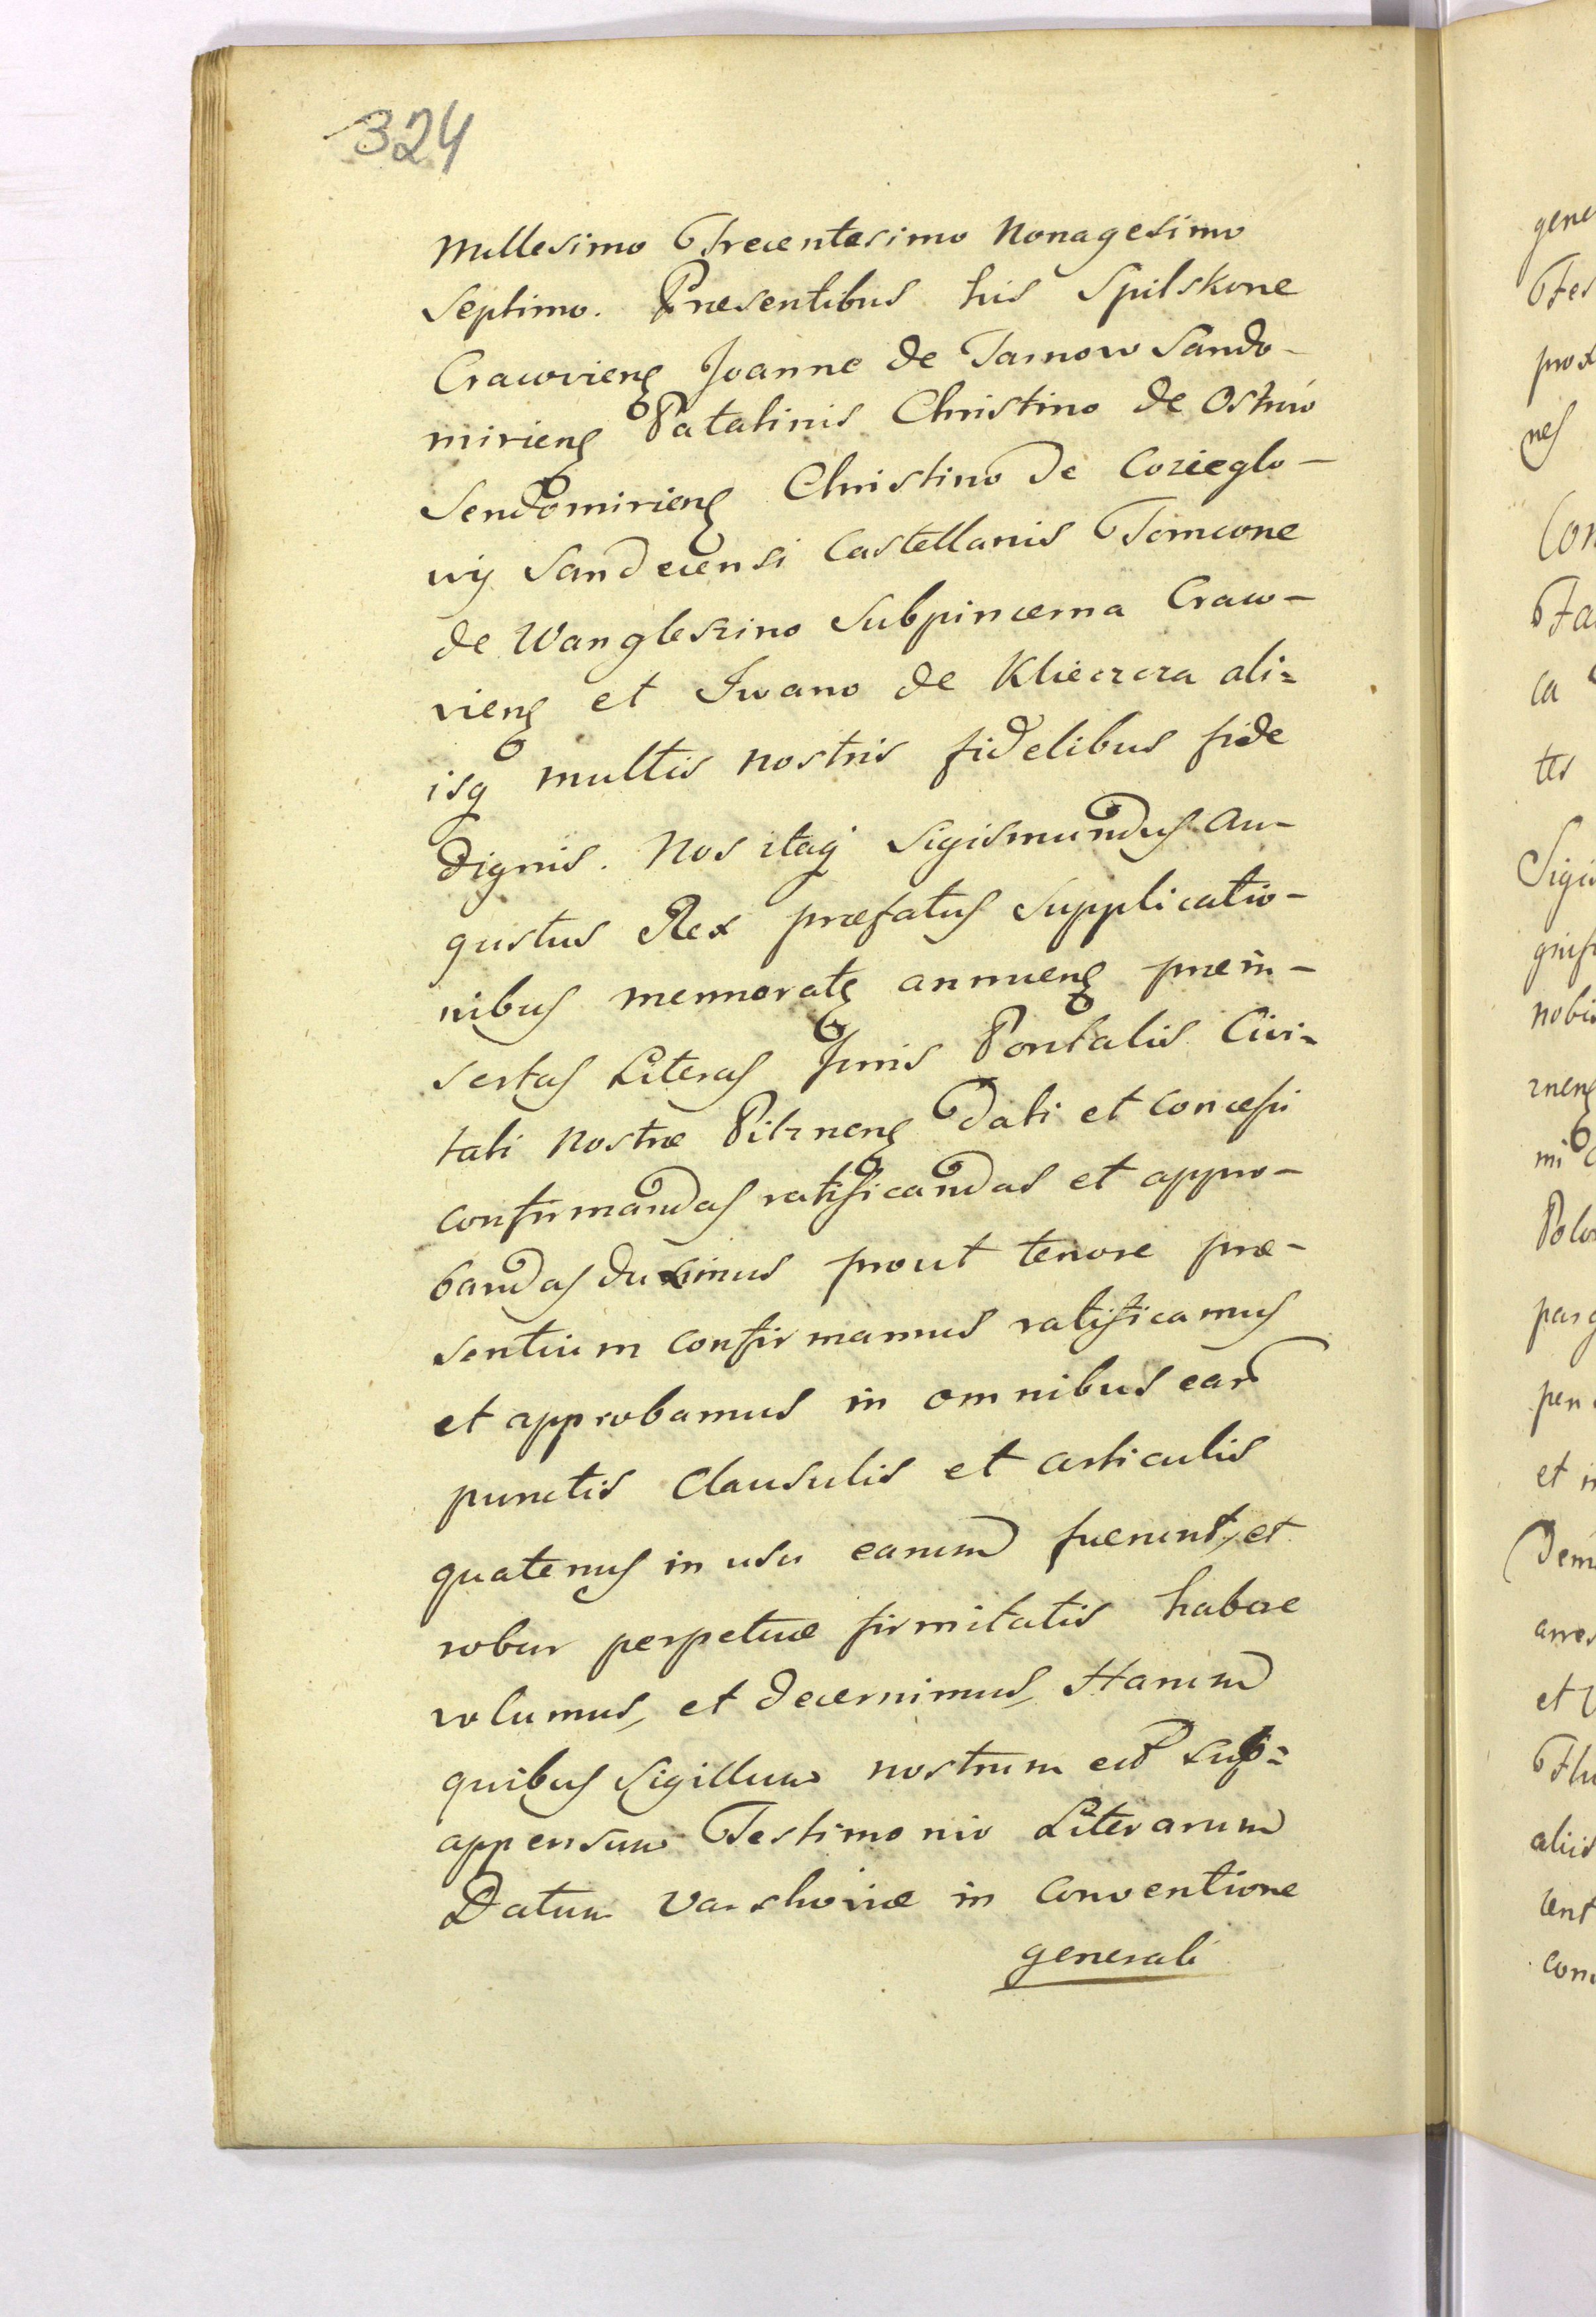 324
Millesimo Trecentesimo Nonagesimo
Septimo. Præsentibus his Spitskone
Cracoviens Joanne de Tarnow Sando-
miriens Palatinis Christino de Ostrow
Sendomiriens Christino de Cozieglo-
wy Sandecensi Castellanis Tomcone
de Wangleszino Subpincerna Craco-
viens et Iwano de Klieczcza ali=
isq multis nostris fidelibus fide
dignis. Nos itaq Sigismundus Au-
gustus Rex præfatus Supplicatio-
nibus memorats annuens præin-
sertas Literas Juris Pontalis Civi=
tati Nostræ Pilznens dati et concessi
confirmandas ratificandas et appro-
bandas duximus prout tenore præ-
sentium confirmamus ratificamus
et approbamus in omnibus ear
punctis Clausulis et articulis
quatenus in usu earum fuerint, et
robur perpetuæ firmitatis habere
volumus, et decernimus, Harum
quibus Sigillum nostrum est sub=
appensum Testimonio Literarum
Datum Varshoviæ in Conventione
generali
gene
Tes
prox
nes
Con
ca
tes
nobis
Polo
et in
et
aliis
cent